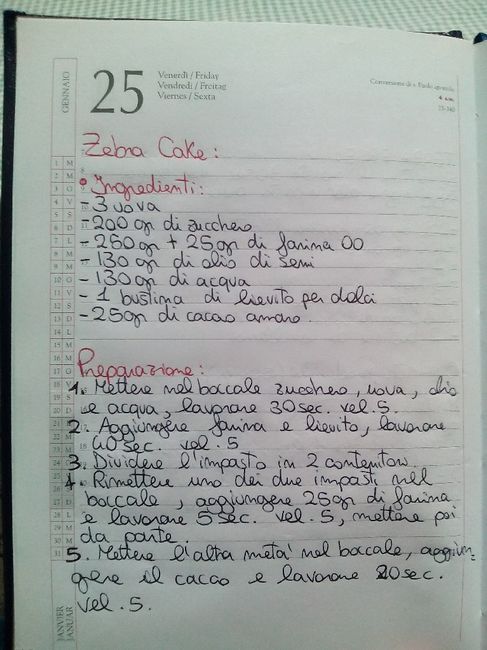 GENNAIO
25
Venerdì / Friday
Vendredi / Freitag
Viernes / Sexta
Conversione di s. Paolo apostolo
25-340
Zebra Cake:
Ingredienti:
- 3 uova
- 200 gr di zucchero
- 250 gr + 25 gr di farina 00
- 130 gr di olio di semi
- 130 gr di acqua
- 1 bustina di lievito per dolci
- 25 gr di cacao amaro.
Preparazione:
1. Mettere nel boccale zucchero, uova, olio
e acqua, lavorare 30 sec. vel. 5.
2. Aggiungere farina e lievito, lavorare
40 sec. vel. 5
3. Dividere l'impasto in 2 contenitori.
4. Rimettere uno dei due impasti nel
boccale, aggiungere 25 gr di farina
e lavorare 5 sec. vel. 5, mettere poi
da parte.
5. Mettere l'altra metà nel boccale, aggiun=
gere il cacao e lavorare 20 sec.
vel. 5.
JANVIER
JANUAR